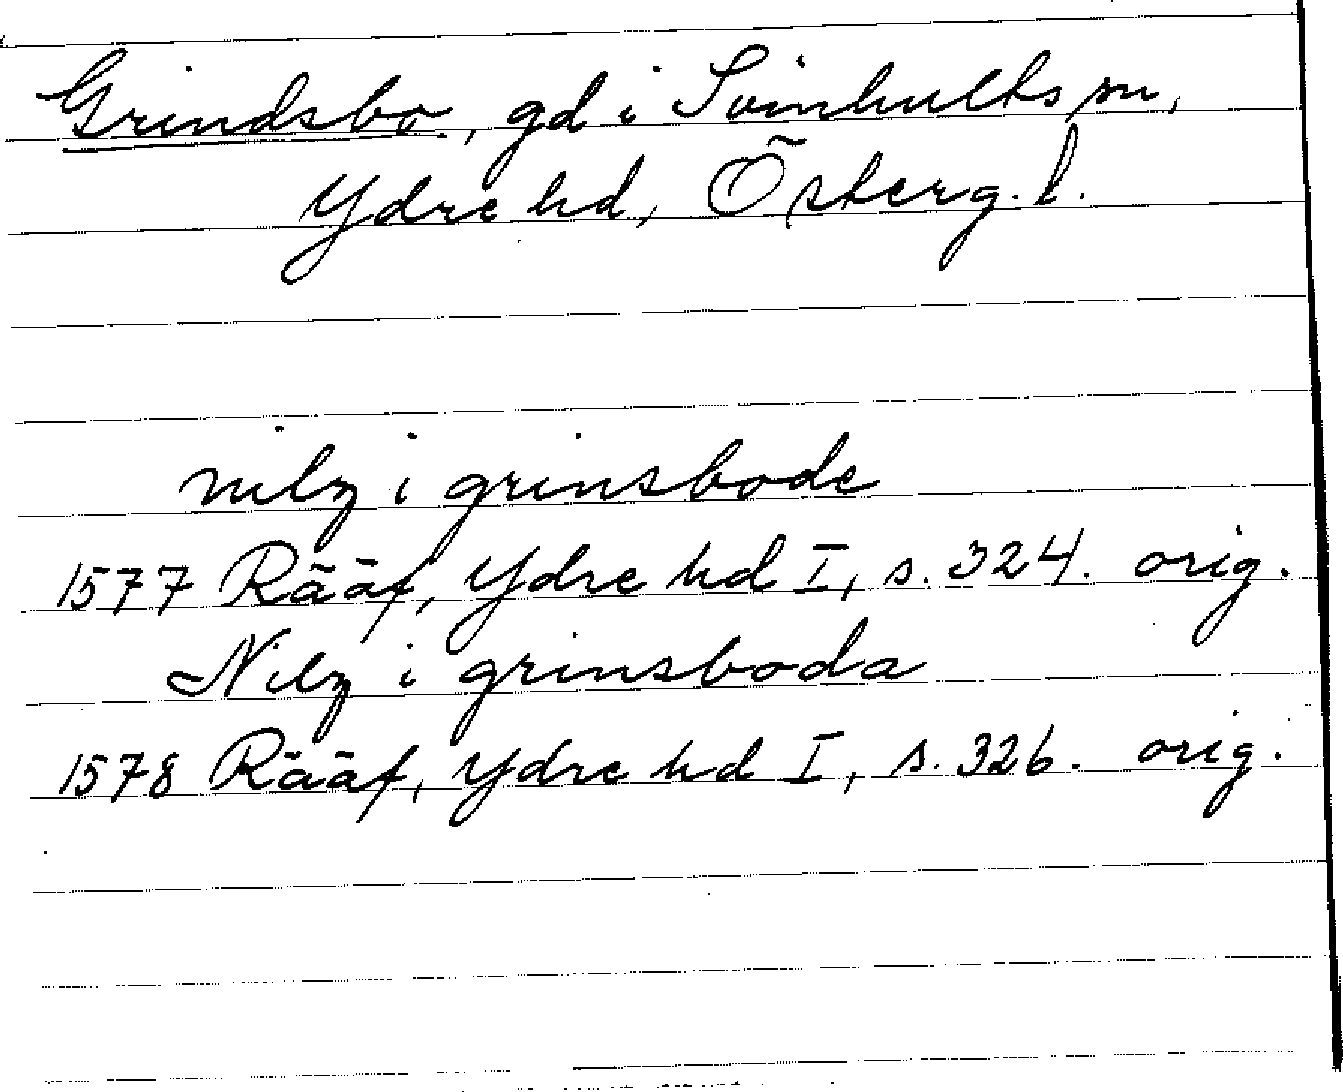 Grindsbo, gd i Svinhults sn,
Ydre hd, Österg. l.
nilz i grinsbode
1577 Rääf, Ydre hd I, s. 324. orig.
Nilz i grinsboda
1578 Rääf, Ydre hd I, s. 326. orig.